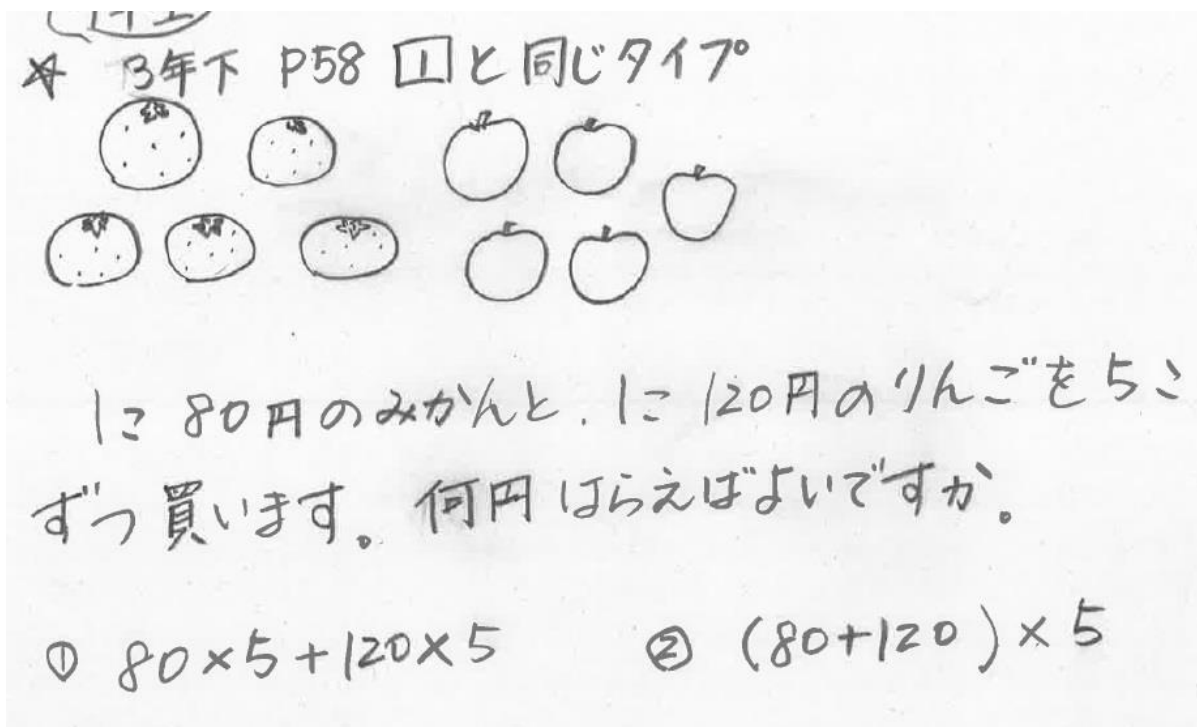 ☆ 3年下 P58 1 と同じタイプ
1こ 80円のみかんと、1こ 120円のりんごを5こ
ずつ買います。何円はらえばよいですか。
① 80×5+120×5 ② (80+120)×5